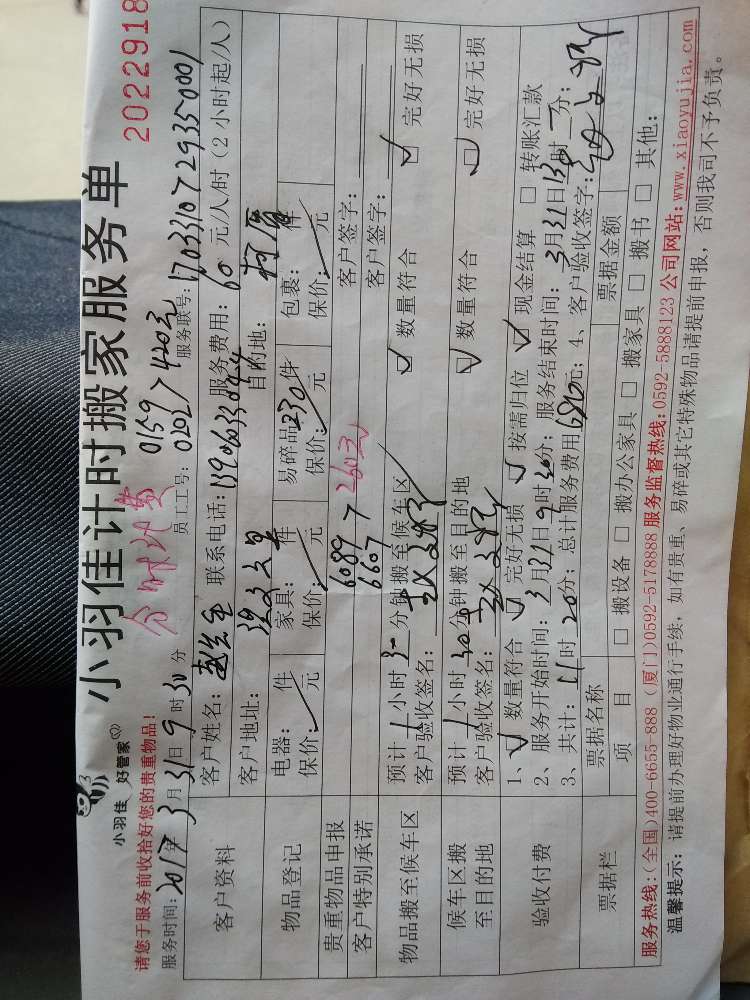 小羽佳 好管家
小羽佳计时搬家服务单
2022918
请您于服务前收拾好您的贵重物品!
分时计费
0159
服务时间:2017年3月31日9时30分 员工工号: 420元 服务联号:1703310729350001
客户资料
客户姓名: 联系电话: 服务费用:60元/人/时(2小时起/人)
客户地址: 目的地:
物品登记
电器: 件 家具: 件 易碎品230件 包裹: 件
保价: 元 保价: 元 保价: 元 保价: 元
贵重物品申报 6089 客户签字:
客户特别承诺 6607 260元 客户签字:
物品搬至候车区
预计1小时30分钟搬至候车区 ✓ 数量符合 ✓ 完好无损
客户验收签名:
候车区搬至目的地
预计1小时30分钟搬至目的地 ✓ 数量符合 □ 完好无损
客户验收签名:
验收付费
1、✓ 数量符合 ✓ 完好无损 ✓ 按需归位 ✓ 现金结算 □ 转账汇款
2、服务开始时间:3月31日9时30分; 服务结束时间:3月31日13时 分;
3、共计: 时20分; 总计服务费用680元; 4、客户验收签字:
票据栏
票据名称 票据金额
项 目 □ 搬设备 □ 搬办公家具 □ 搬家具 □ 搬书 □ 其他:
服务热线:(全国)400-6655-888 (厦门)0592-5178888 服务监督热线:0592-5888123 公司网站:www.xiaoyujia.com
温馨提示: 请提前办理好物业通行手续, 如有贵重、易碎或其它特殊物品请提前申报, 否则我司不予负责。